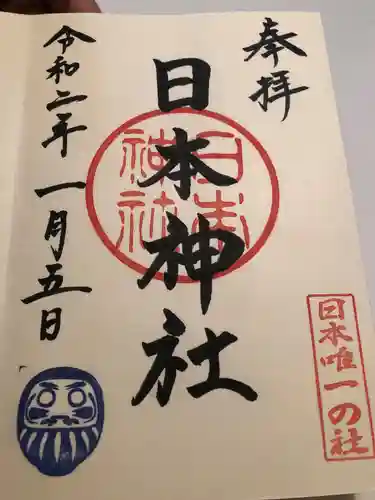 奉拝
日本神社
日本神社
令和二年一月五日
日本唯一の社